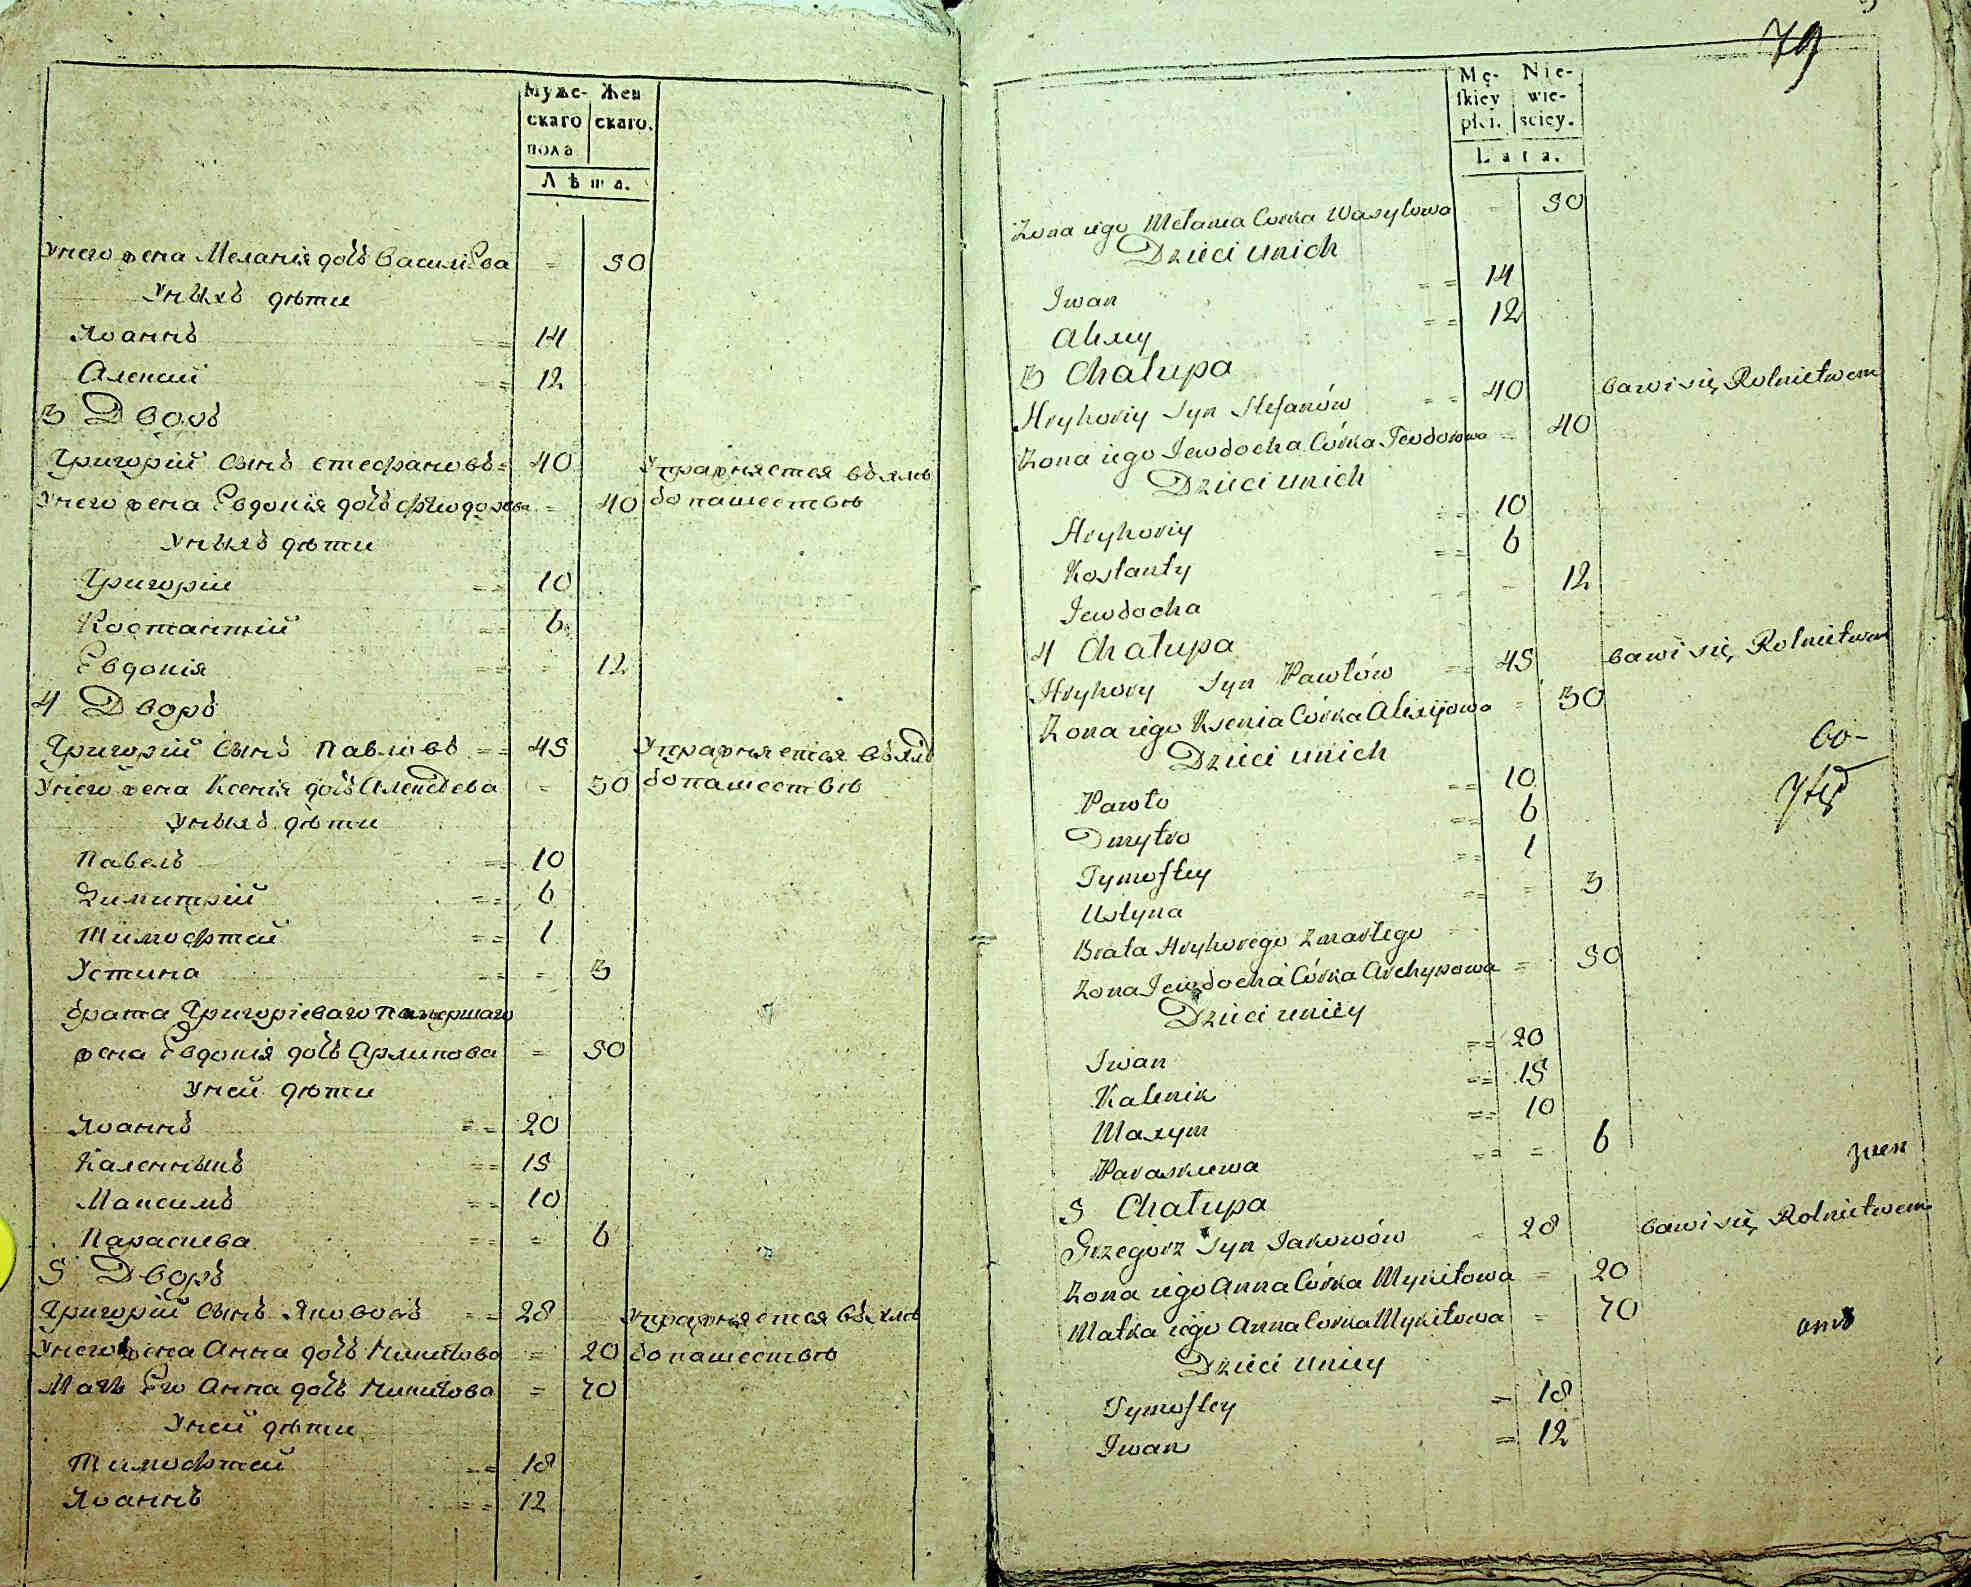 Муже- Жен
скаго скаго.
пола
Лѣта.
У него жена Меланія дочь Василіева = 50
У нихъ дѣти
Іоаннъ == 14
Алексій == 12
3 Дворъ
Григорій сынъ Стефановъ = 40 Упражняется въ хлѣ
У него жена Евдокія дочь Фіодорова = 40 бопашествѣ
У нихъ дѣти
Григорій == 10
Костантій == 6
Евдокія == = 12
4 Дворъ
Григорій сынъ Павловъ == 45 Упражняется въ хлѣ
У него жена Ксенія дочь Алексѣева = 30 бопашествѣ
У нихъ дѣти
Павелъ == 10
Димитрій == 6
Тимофтей == 1
Устина == = 3
брата Григоріеваго помершаго
жена Евдокія дочь Архипова = 50
У ней дѣти
Іоаннъ == 20
Каленникъ == 15
Максимъ == 10
Параскева == = 6
5 Дворъ
Григорій сынъ Якововъ == 28 Упражняется въ хлѣ
У него жена Анна дочь Микитова = 20 бопашествѣ
Мать Его Анна дочь Микитова = 70
У ней дѣти
Тимофтей == 18
Іоаннъ == 12
79
Mę- Nie-
skiey wie-
płci. sciey.
Lata.
Zona iego Melania Corka Wasylowa = 50
Dzieci u nich
Iwan == 14
Alexy == 12
3 Chałupa
Hryhoriy Syn Stefanów == 40 bawi się Rolnictwem
Zona iego Iewdocha Córka Teodorowa = 40
Dzieci u nich
Hryhoriy == 10
Kostanty == 6
Iewdocha == - 12
4 Chałupa
Hryhory Syn Pawłów == 45 bawi się Rolnictwem
Zona iego Ksenia Córka Alexijowa = 30
Dzieci u nich
Pawło == 10
Dmytro == 6
Tymoftey == 1
Ustyna == = 3
Brata Hryhorego zmarłego
Zona Iewdocha Córka Archypowa = 50
Dzieci u niey
Iwan == 20
Kalenik == 15
Maxym == 10
Paraskiewa == = 6
5 Chałupa
Grzegorz Syn Jakowów = 28 bawi się Rolnictwem
Zona iego Anna Córka Mykitowa = 20
Matka iego Anna Corka Mykitowa = 70
Dzieci u niey
Tymoftey = 18
Iwan = 12